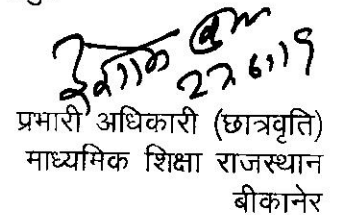 27.6.19
प्रभारी अधिकारी (छात्रवृति)
माध्यमिक शिक्षा राजस्थान
बीकानेर